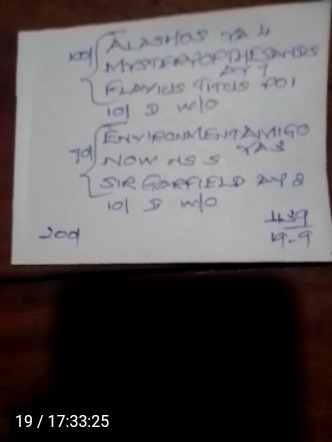 ALASHOS YA 4
MYSTERPOFTHESANDS
AY 7
FLAVIUS TITUS PO1
10/ D W/O
70/ ENVIRONMENTAMIGO
YA3
NOW NS 5
SIR GARFIELD AY 8
10/ D W/O
200/
439
19-9
19 / 17:33:25